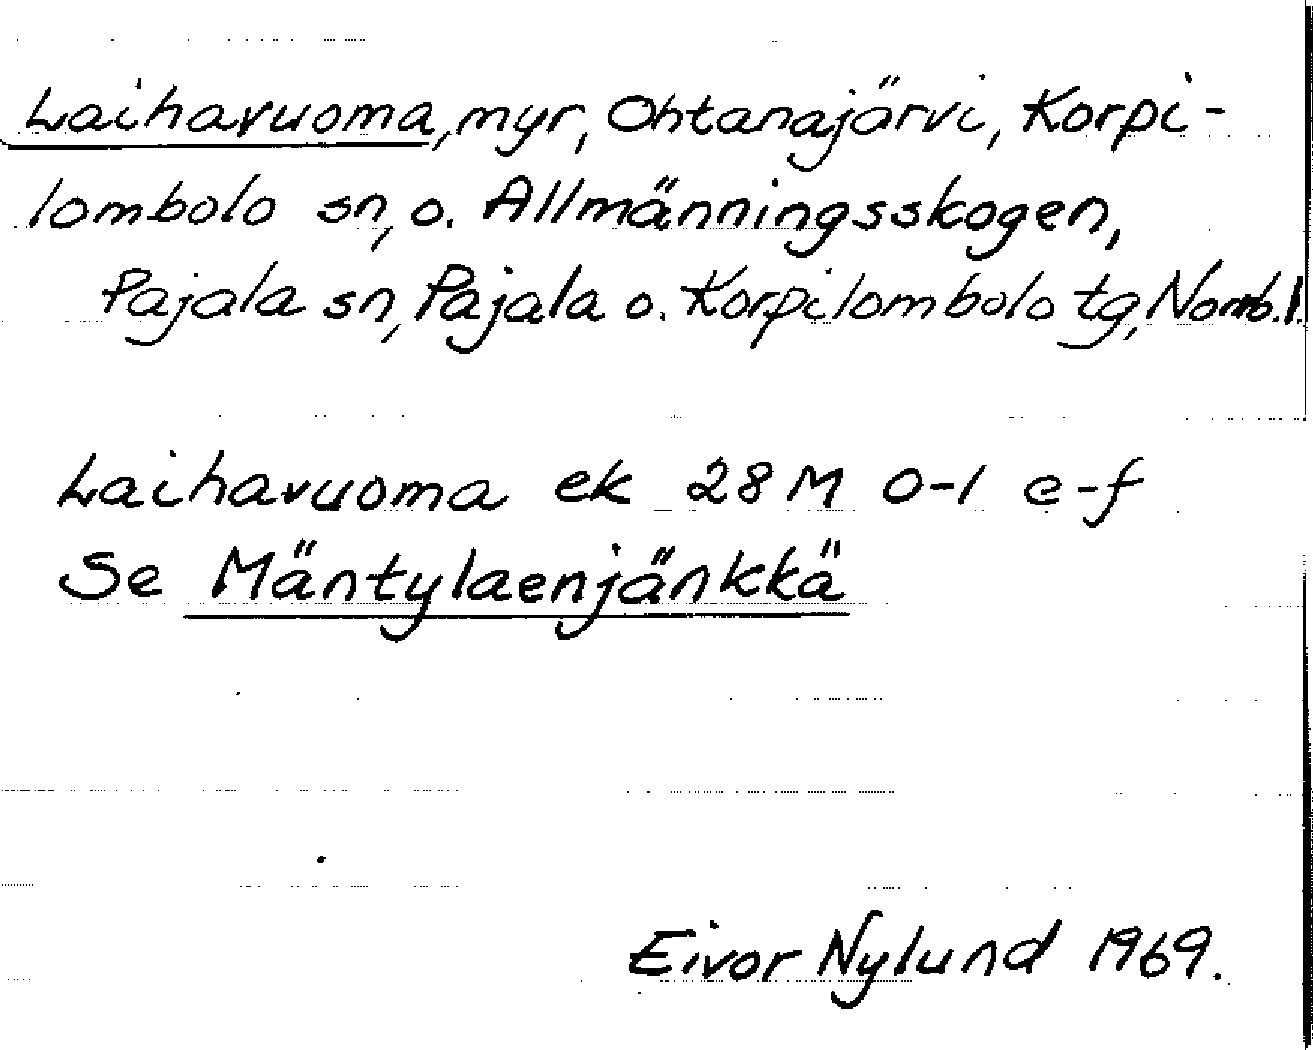 Laihavuoma, myr, Ohtanajärvi, Korpi-
lombolo sn, o. Allmänningsskogen,
Pajala sn, Pajala o. Korpilombolo tg, Nomb. l.
Laihavuoma ek 28 M 0-1 e-f
Se Mäntylaenjänkkä
Eivor Nylund 1969.